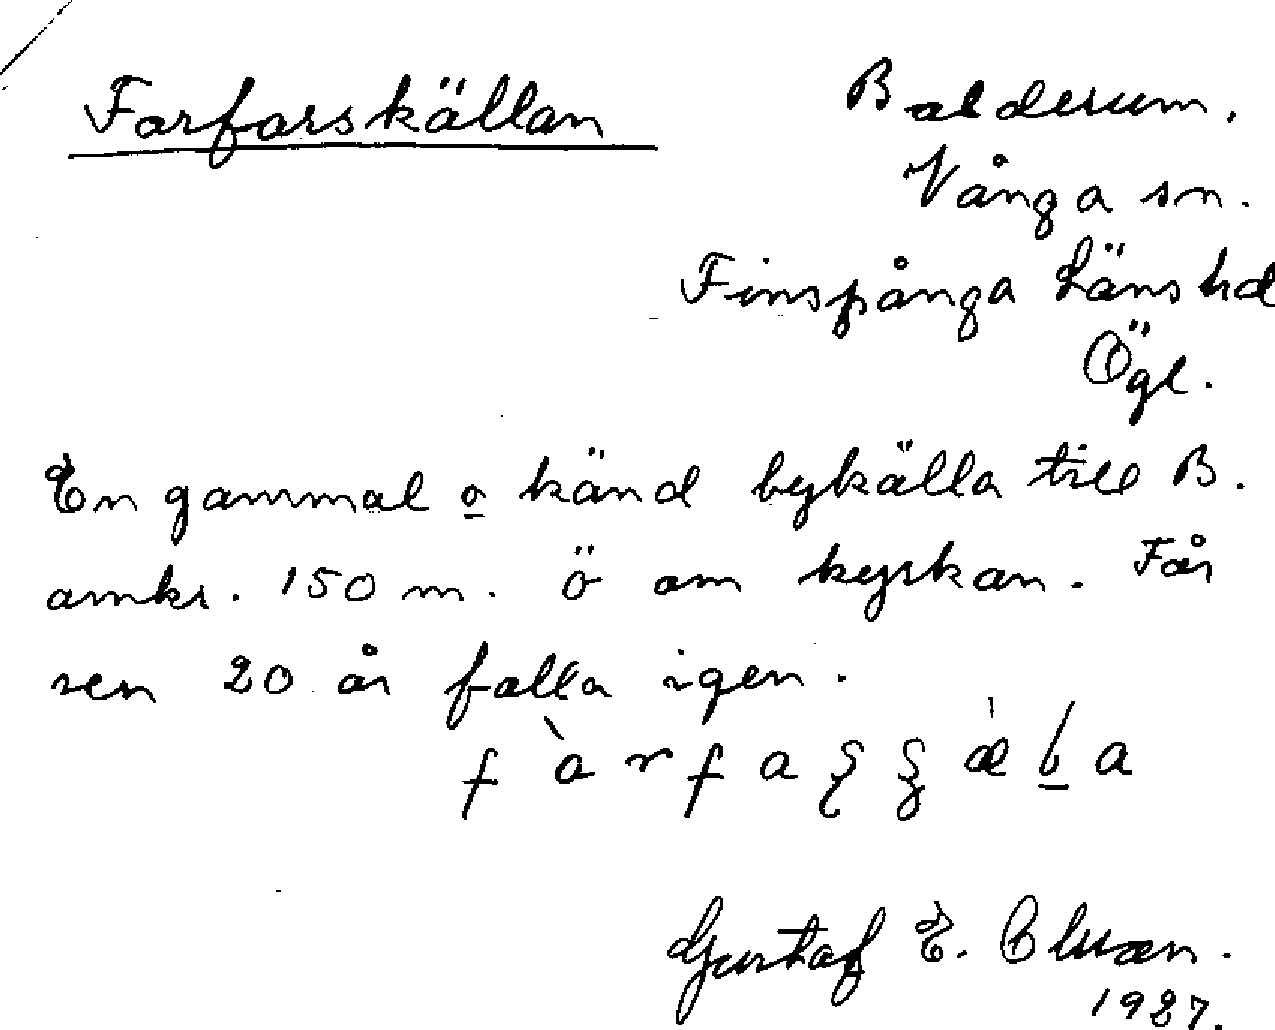 Farfarskällan
Balderum.
Vånga sn.
Finspånga Länshd
Ögl.
En gammal o känd bykälla till B.
omkr. 150 m. ö om kyrkan. För
sen 20 år falla igen.
Gustaf E.
1927.